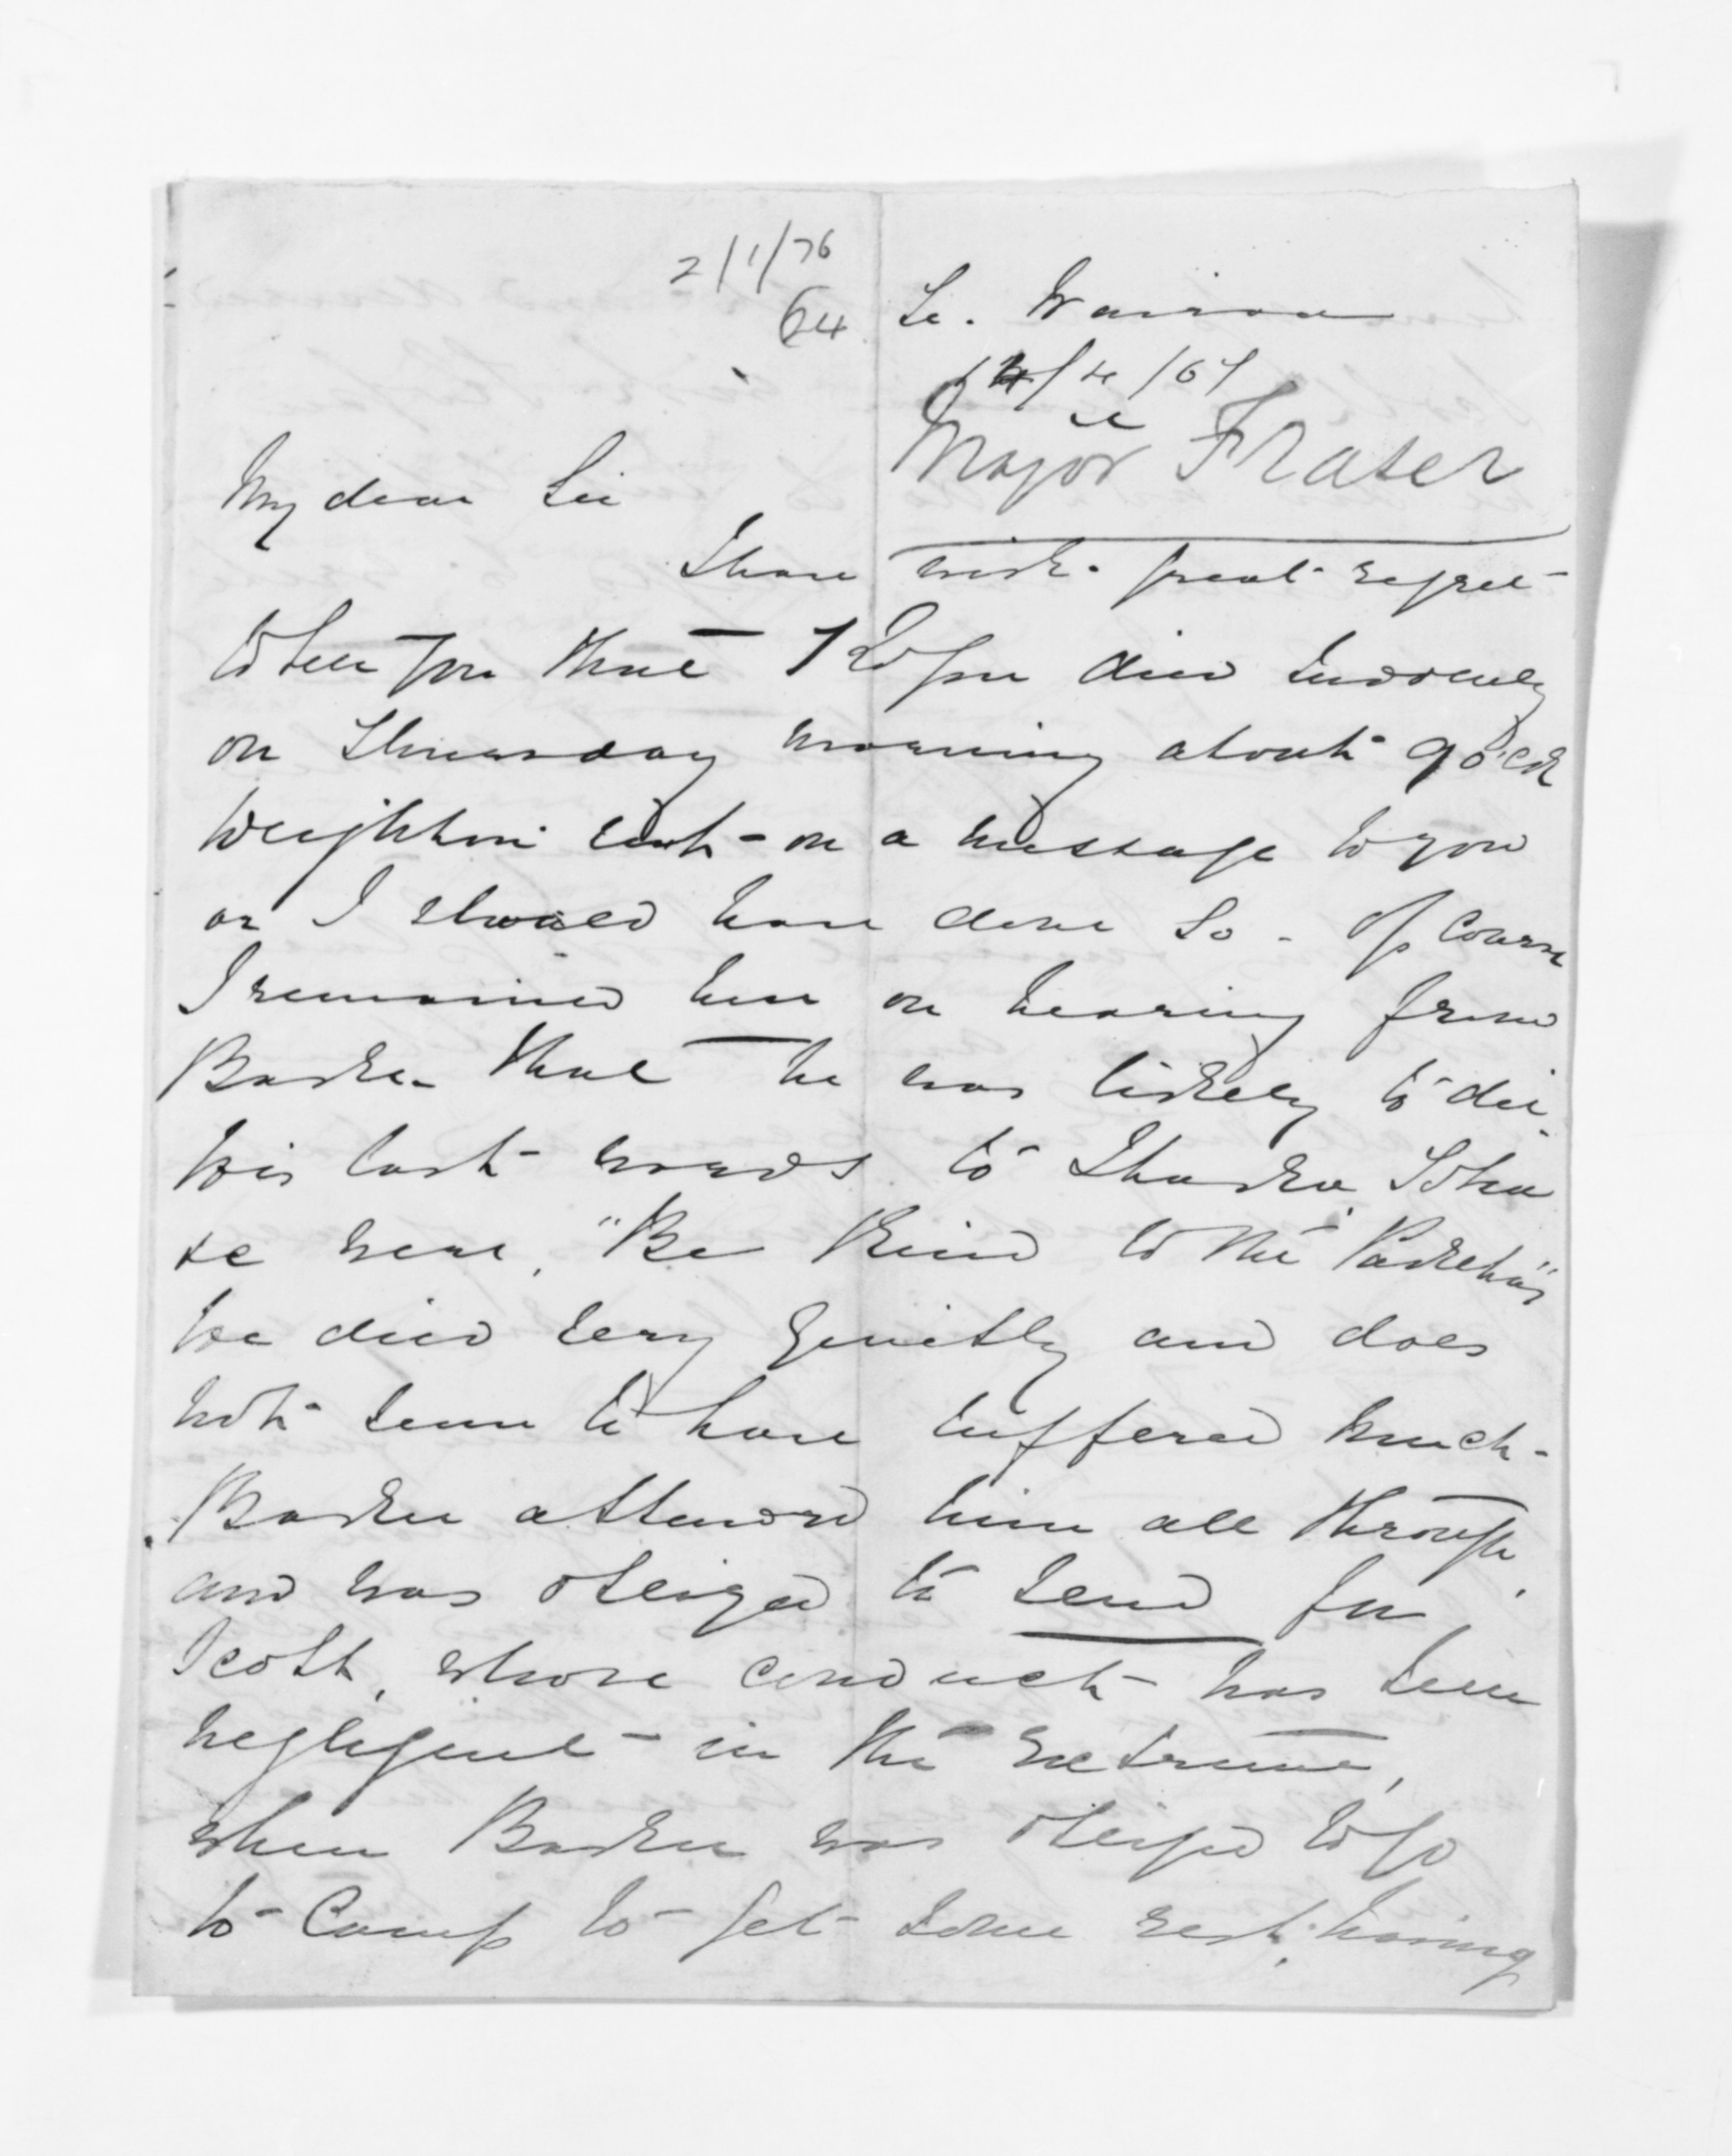 2/1/76
64
Te. Wairoa
14/4/67
Major Frazer
My dear Sir
I have with great regret
to tell you that died suddenly
on Thursday morning about 9 o'clk
Deighton sent on a message to you
or I should have done so. Of course
I remained here on hearing from
Barker that he was likely to die.
His last words to Ihaka
te were, "Be Kind to the Pakehas"
He died very quietly and does
not seem to have suffered much.
Barker attended him all through,
and was obliged to send for
Scott, whose conduct has been
negligent in the extreme,
when Barker was obliged to go
to Camp to get some rest, having